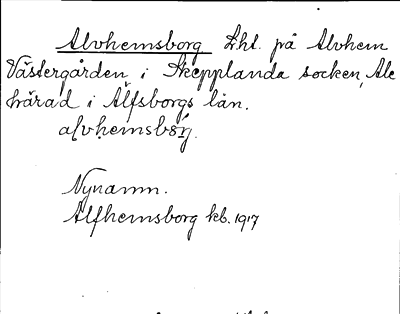 Alvhemsborg Lht. på Alvhem
Västergården i Skepplanda socken, Ale
härad i Älfsborgs län.
alvhemsbårj.
Nynamn.
Alfhemsborg kb. 1917